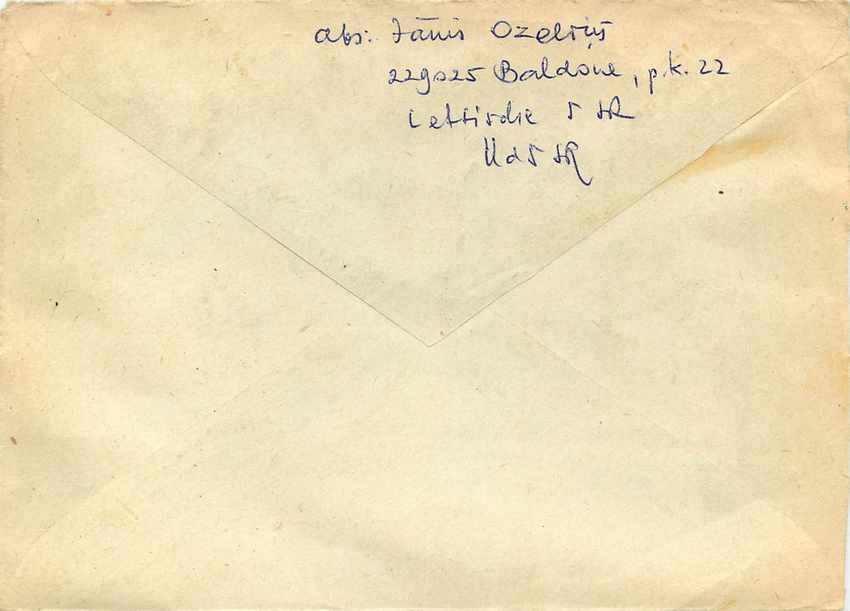 Abs: Jānis Ozoliņš
229025 Baldone, p.k. 22
Lettische SSR
UdSSR